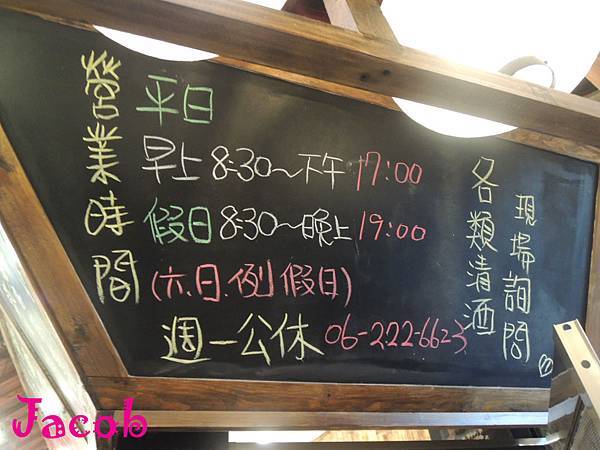 營業時間
平日
早上8:30～下午17:00
假日8:30～晚上19:00
(六.日.例假日)
週一公休 06-222-6623
各類清酒
現場詢問
Jacob